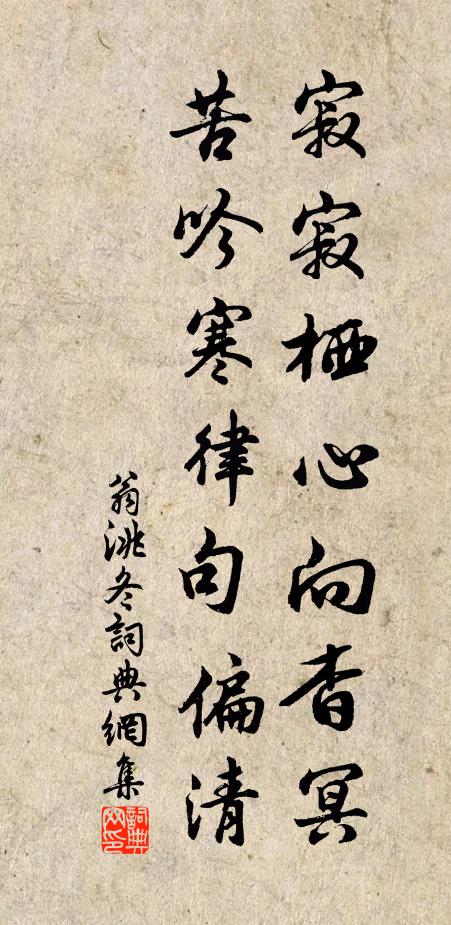 寂寂栖心向杳冥
苦吟寒律句偏清
翁洮冬詞典網集
詞典
网印